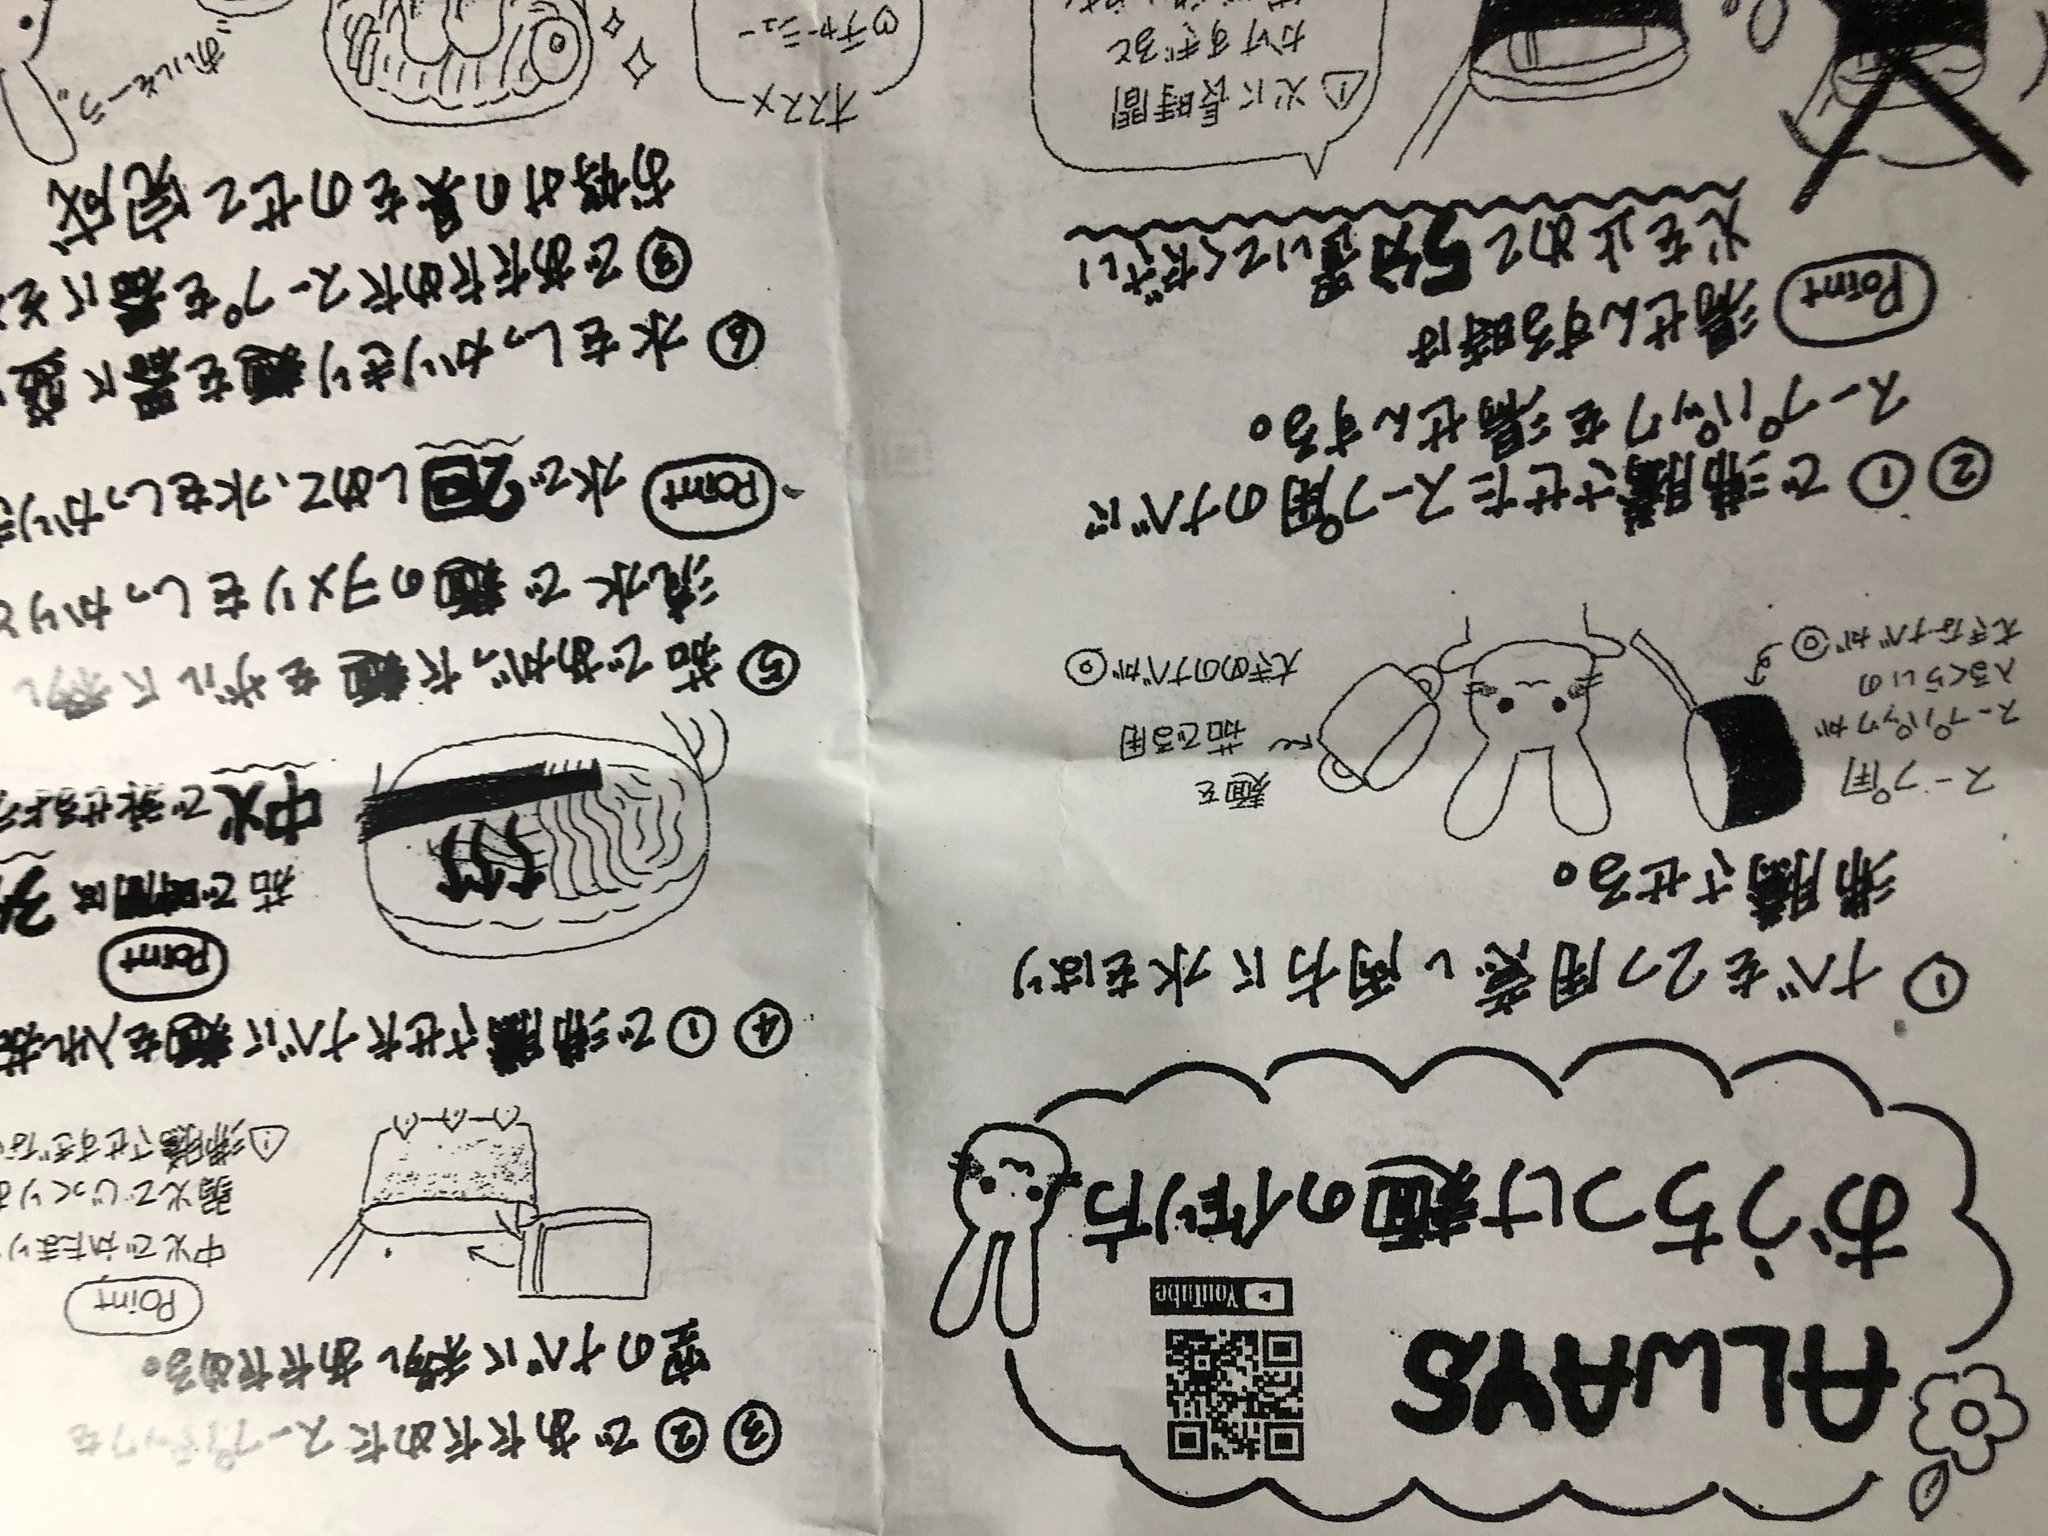 ALWAYS
YouTube
おうちつけ麺の作り方
① ナベを2つ用意し両方に水をはり
沸騰させる。
スープ用
スープパックが
入るくらいの
大きなナベが◎
麺を
茹でる用
大きめのナベが◎
② ①で沸騰させたスープ用のナベに
スープパックを湯せんする。
Point 湯せんする時は
火を止めて5分置いてください
⚠火に長時間
かけすぎると
③ ②であたためたスープパックを
空のナベに移しあたためる。
Point
中火であたまり
弱火でじっくり
⚠沸騰させすぎな
④ ①で沸騰させたナベに麺を入れ茹
Point
茹で時間は3
中火で泳せるよう
⑤ 茹であがった麺をザルに移し
流水で麺のヌメリをしっかりと
Point 水で2回しめて、水をしっかり
⑥ 水をしっかりきり麺を器に盛
③であたためたスープを器に
お好みの具をのせて完成
オススメ
♡チャーシュー